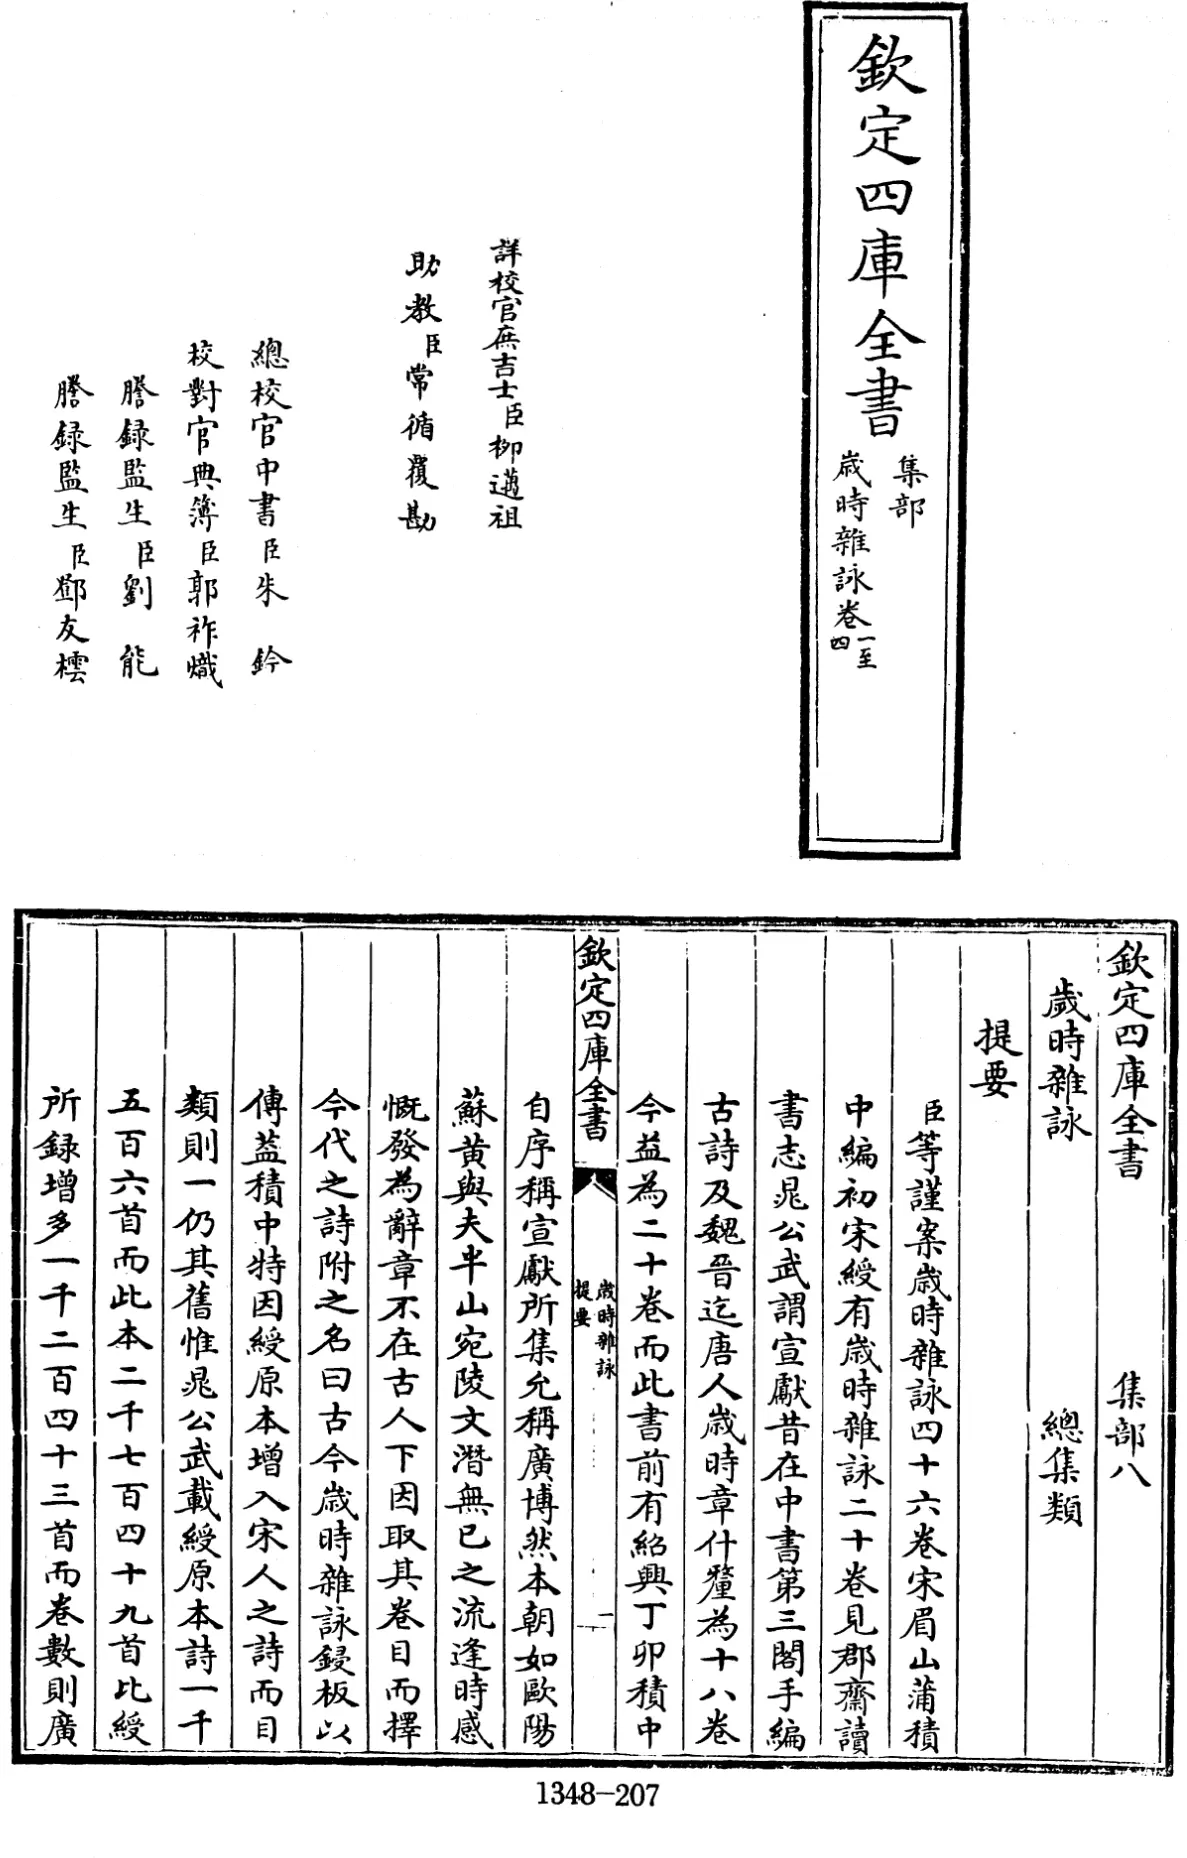 欽定四庫全書
集部
歲時雜詠卷一至四
詳校官庶吉士臣柳邁祖
助教臣常循覆勘
總校官中書臣朱鈐
校對官典簿臣郭祚熾
謄録監生臣劉能
謄録監生臣鄧友橒
欽定四庫全書 集部八
歲時雜詠 總集類
提要
臣等謹案歲時雜詠四十六卷宋眉山蒲積
中編初宋綬有歲時雜詠二十卷見郡齋讀
書志晁公武謂宣獻昔在中書第三閣手編
古詩及魏晉迄唐人歲時章什釐為十八卷
今益為二十卷而此書前有紹興丁卯積中
欽定四庫全書
歲時雜詠
提要
一
自序稱宣獻所集允稱廣博然本朝如歐陽
蘇黃與夫半山宛陵文潛無已之流逢時感
慨發為辭章不在古人下因取其卷目而擇
今代之詩附之名曰古今歲時雜詠鋟板以
傳蓋積中特因綬原本增入宋人之詩而目
類則一仍其舊惟晁公武載綬原本詩一千
五百六首而此本二千七百四十九首比綬
所録增多一千二百四十三首而卷數則廣
1348-207